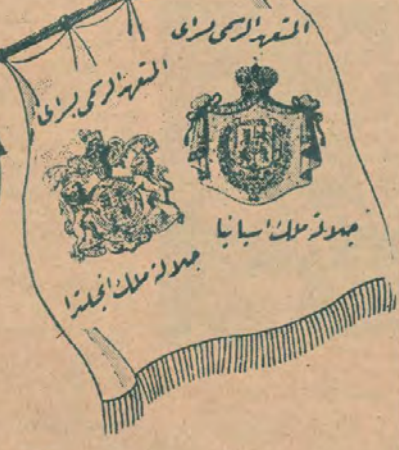 المتعهد الرسمى لسراى
جلالة ملك اسبانيا
المتعهد الرسمى لسراى
جلالة ملك انجلترا